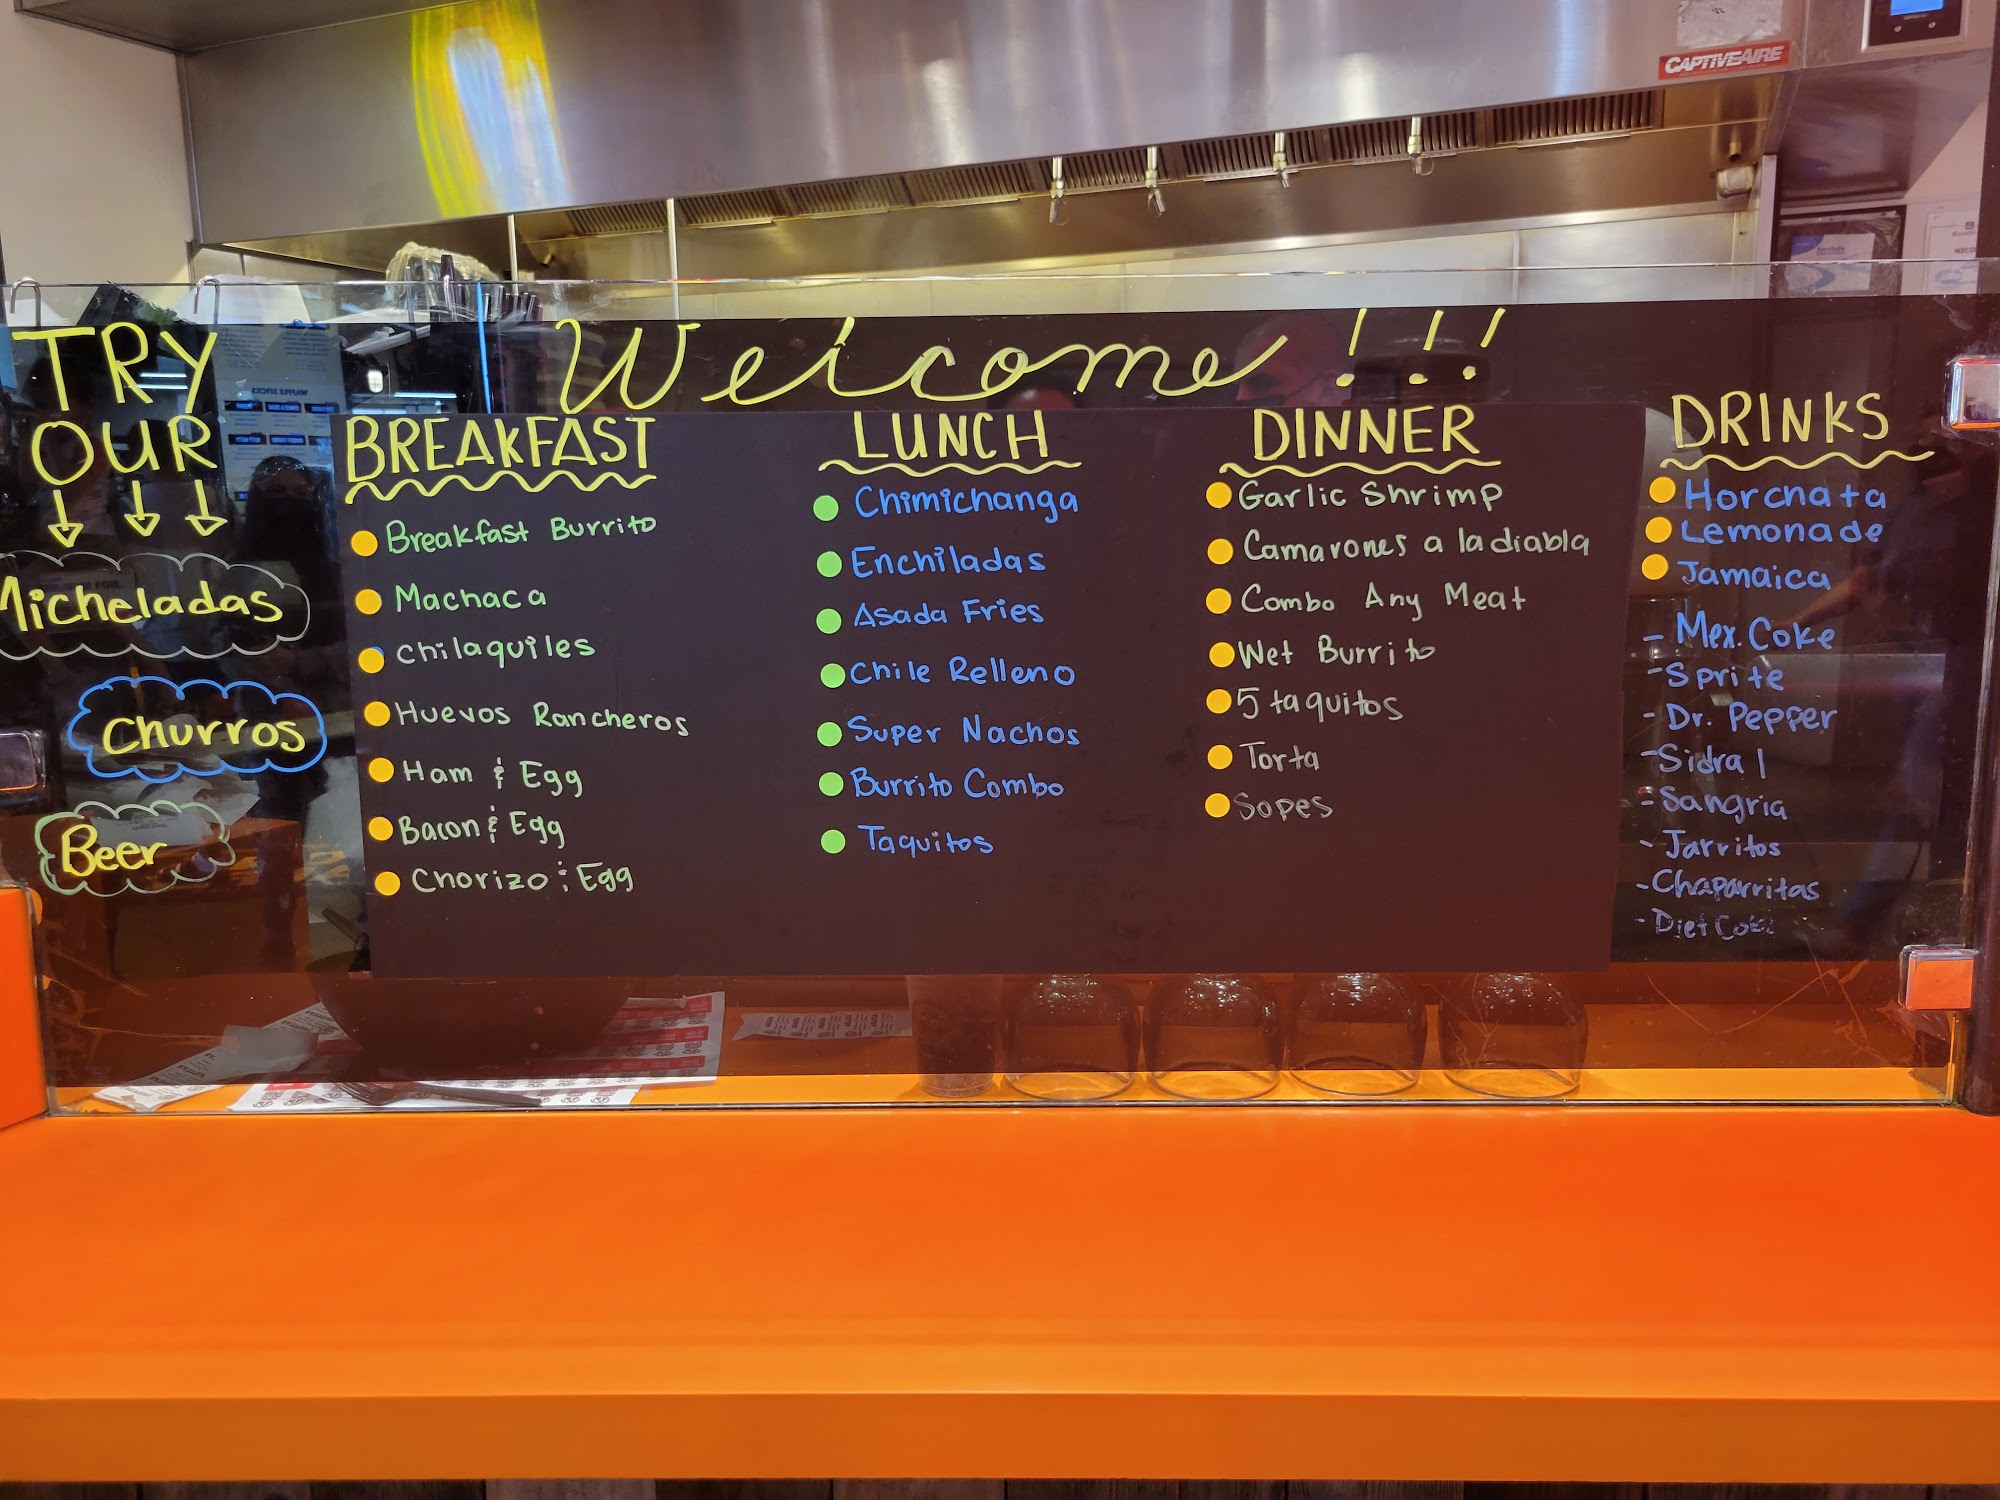 CAPTIVEAIRE
Welcome!!!
TRY
OUR
Micheladas
Churros
Beer
BREAKFAST
Breakfast Burrito
Machaca
Chilaquiles
Huevos Rancheros
Ham & Egg
Bacon & Egg
Chorizo & Egg
LUNCH
Chimichanga
Enchiladas
Asada Fries
Chile Relleno
Super Nachos
Burrito Combo
Taquitos
DINNER
Garlic Shrimp
Camarones a la diabla
Combo Any Meat
Wet Burrito
5 taquitos
Torta
Sopes
DRINKS
Horchata
Lemonade
Jamaica
- Mex. Coke
- Sprite
- Dr. Pepper
- Sidral
- Sangria
- Jarritos
- Chaparritas
- Diet Coke